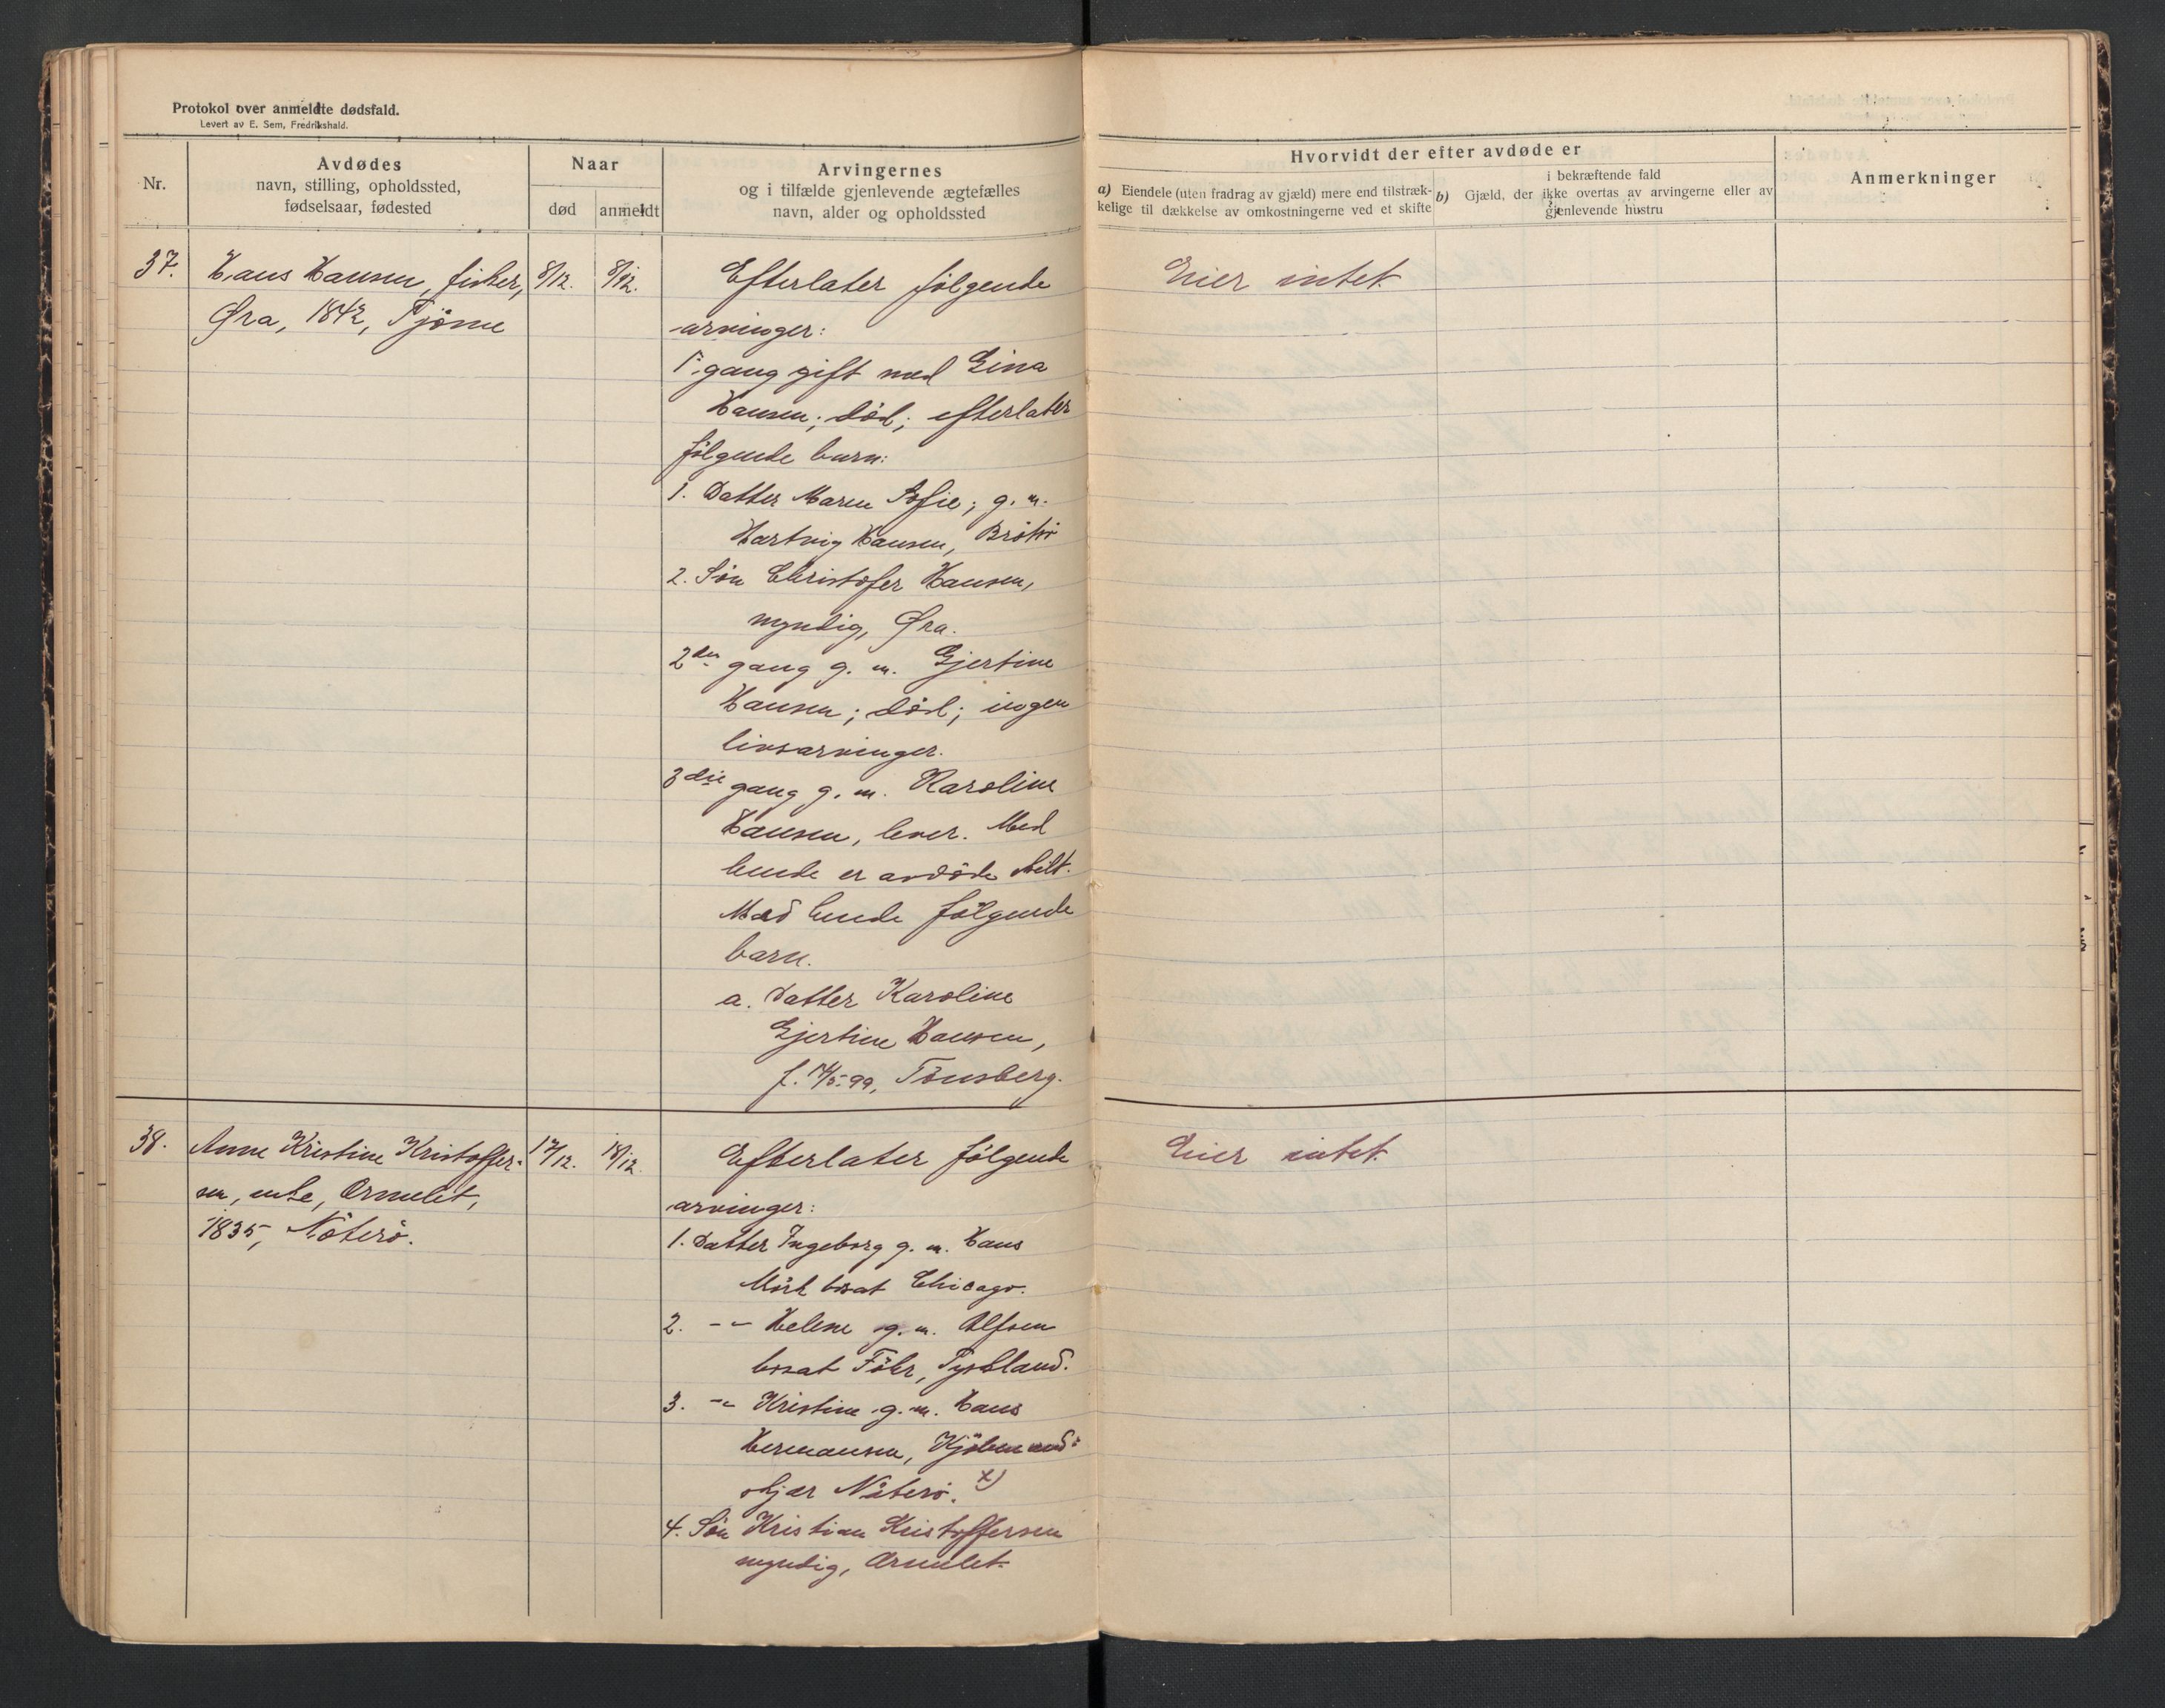 Protokol over anmeldte dødsfald.
Levert av E. Sem, Fredrikshald.
Nr.
Avdødes
navn, stilling, opholdssted,
fødselsaar, fødested
Naar
død
anmeldt
Arvingernes
og i tilfælde gjenlevende ægtefælles
navn, alder og opholdssted
Hvorvidt der efter avdøde er
a) Eiendele (uten fradrag av gjæld) mere end tilstræk-
kelige til dækkelse av omkostningerne ved et skifte
i bekræftende fald
b) Gjæld, der ikke overtas av arvingerne eller av
gjenlevende hustru
Anmerkninger
37.
Hans Hansen, fisker,
Øra, 1842, Tjöme
8/12.
8/12.
Efterlater følgende
arvinger:
1. gang gift med Gina
Hansen; död; efterlater
følgende barn:
1. Datter Maren Sofie; g. m.
Hartvig Hansen, Brötsö
2. Sön Christofer Hansen,
myndig, Øra.
2den gang g. m. Gjertine
Hansen; död; ingen
livsarvinger.
3die gang g. m. Karoline
Hansen, lever. Med
hende er avdöde skilt.
Med hende følgende
barn.
a. Datter Karoline
Gjertine Hansen,
f. 14/5.99, Tönsberg.
Eier intet.
38.
Anne Kristine Kristoffer-
sen, enke, Ormelet,
1835, Nöterö.
17/12.
18/12.
Efterlater følgende
arvinger:
1. Datter Ingeborg g. m. Hans
Mörk bosat Chicago.
2. -"- Helene g. m. Alfsen
bosat Föhr, Tyskland.
3. -"- Kristine g. m. Hans
Hermansen, Kjöbmand-
skjær Nöterö. x)
4. Sön Kristian Kristoffersen
myndig, Ormelet.
Eier intet.